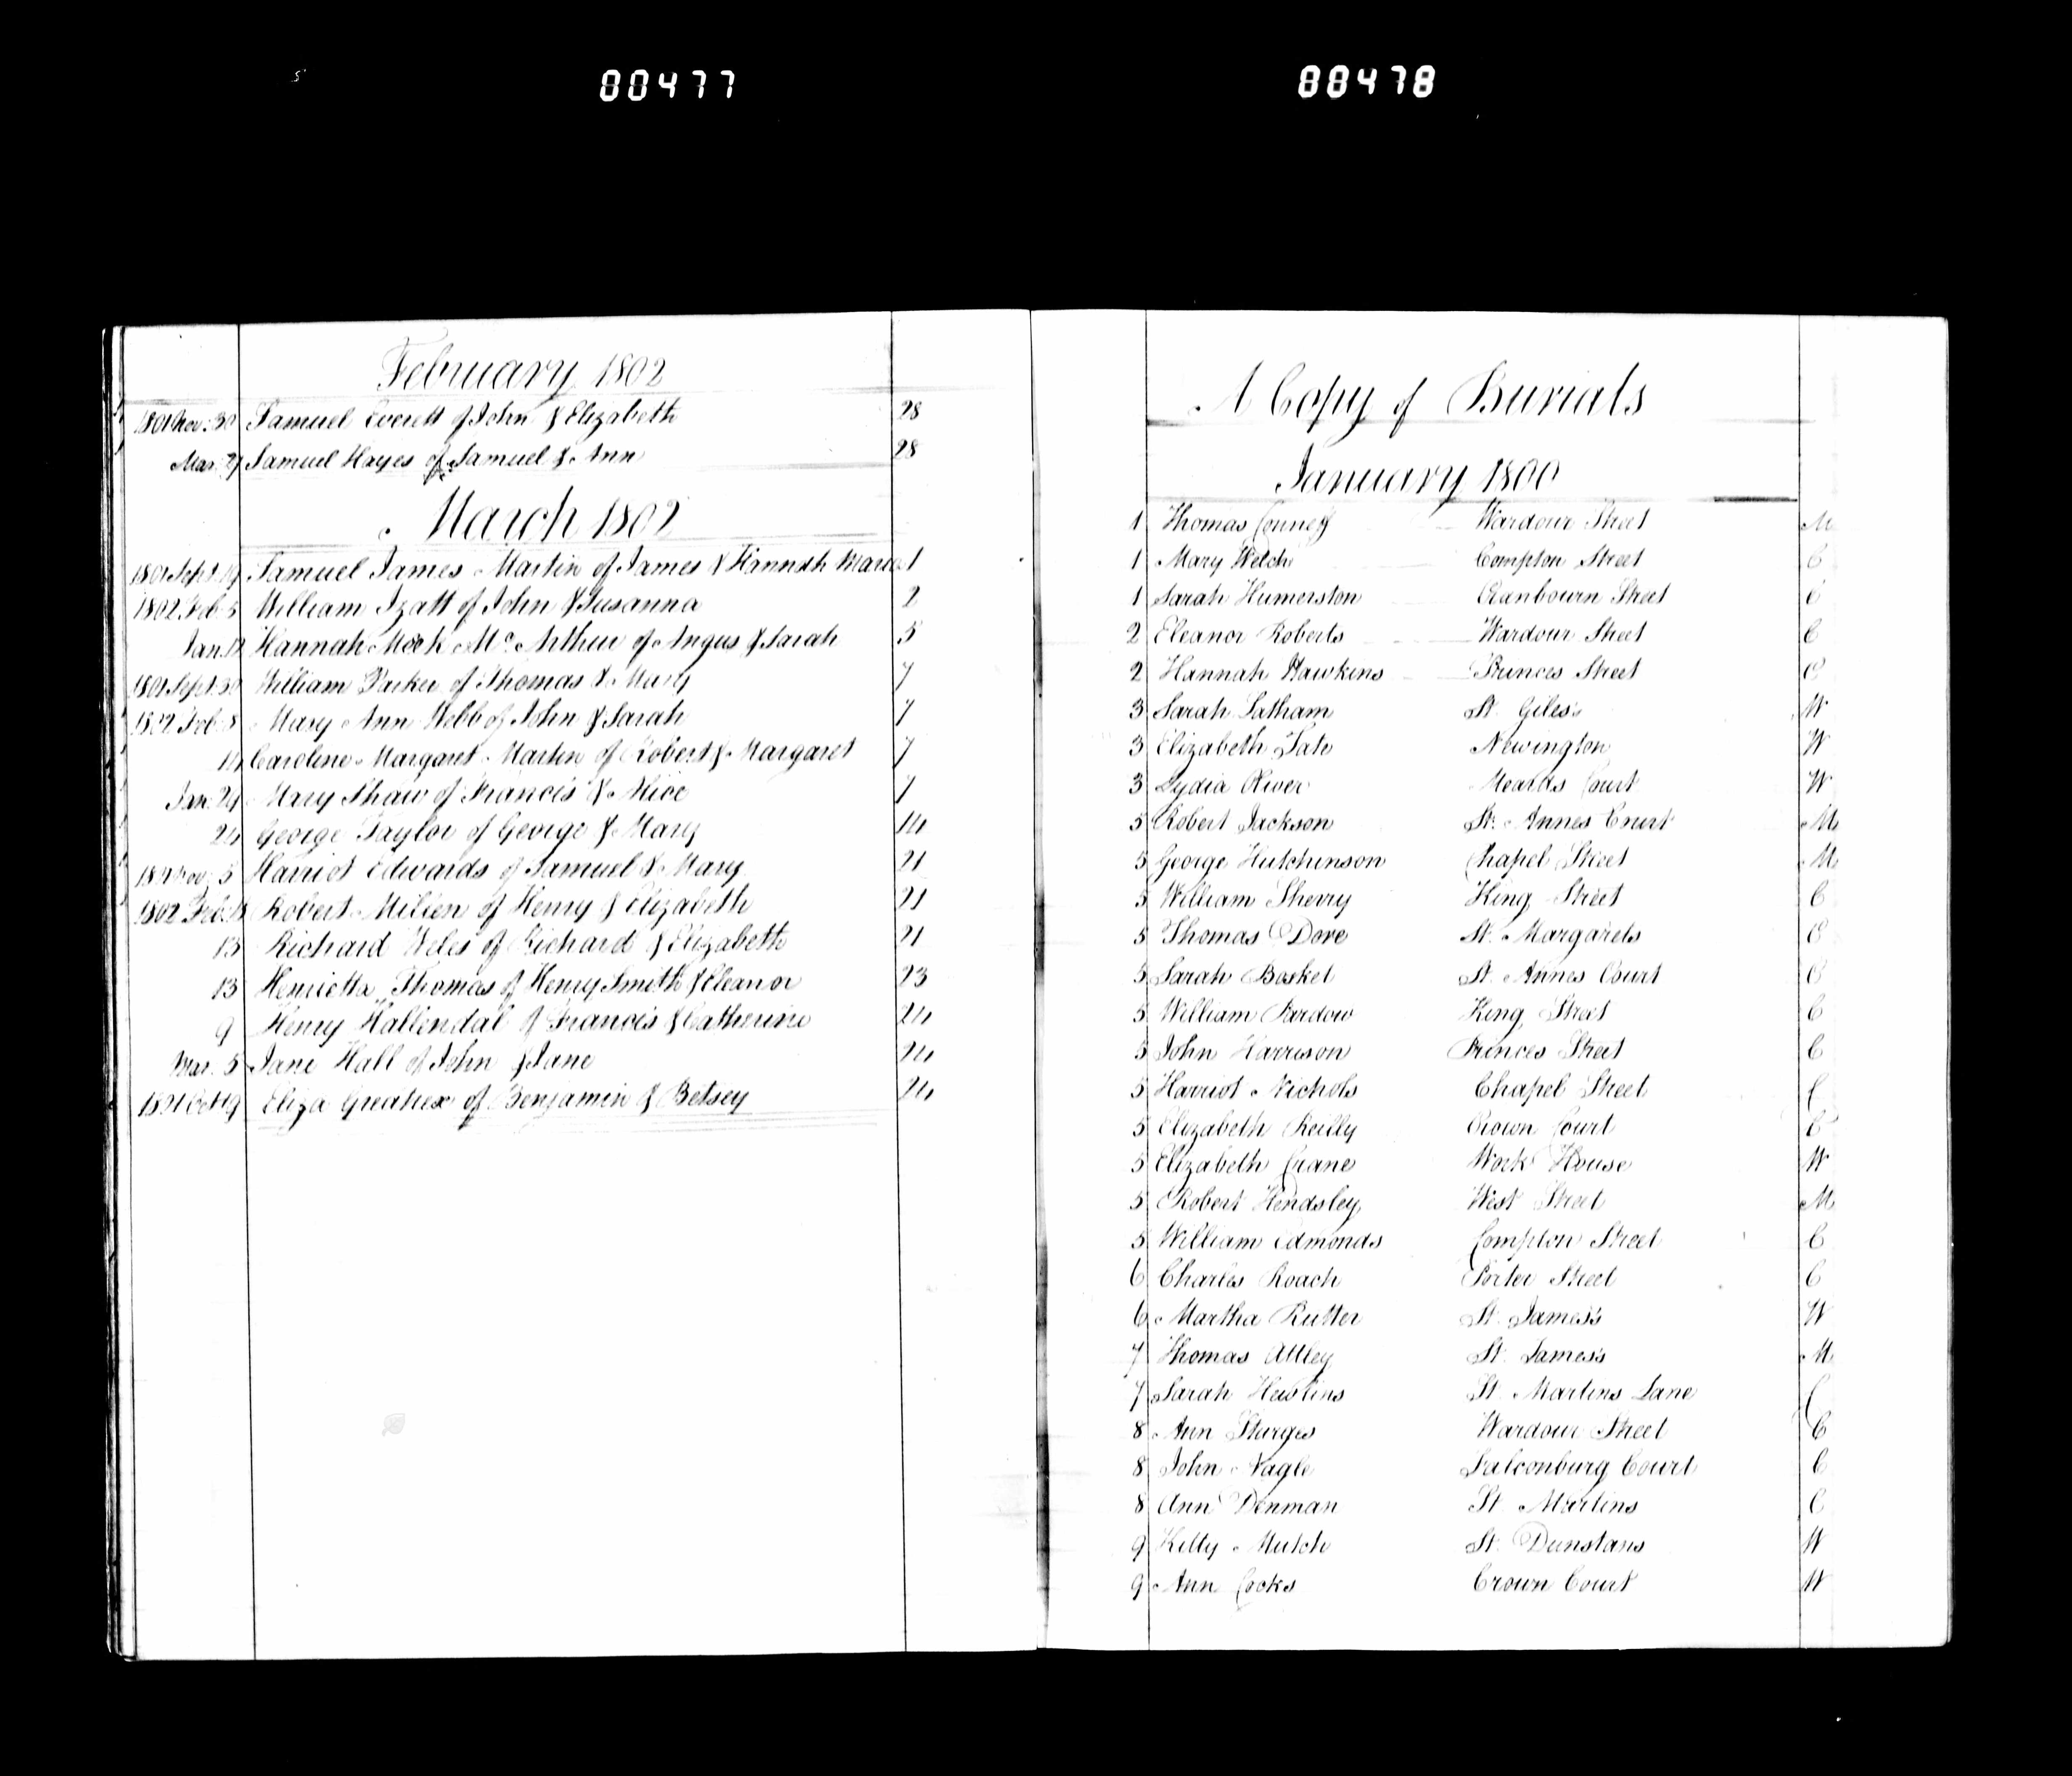 00477
00478
February 1802
1801 Nov. 30 Samuel Everett of John & Elizabeth 28
Mar. Samuel Hayes of Samuel & Ann 28
March 1802
1801 Sept. 19 Samuel James Martin of James & Hannah Maria 1
1802 Feb. 5 William Izatt of John & Susanna 2
Jan. Hannah Meek Mc. Arthur of Angus & Sarah 5
1801 Sept. 30 William Parker of Thomas & Mary 7
1802 Feb. 8 Mary Ann Webb of John & Sarah 7
Caroline Margaret Martin of Robert & Margaret 7
Jan. 24 Mary Shaw of Francis & Alice 7
24 George Taylor of George & Mary 14
Nov. 5 Harriot Edwards of Samuel & Mary 21
1802 Feb. Robert Milien of Henry & Elizabeth 21
13 Richard Weles of Richard & Elizabeth 21
13 Henrietta Thomas of Henry Smith & Eleanor 23
9 Henry Hallendal of Francis & Catherine 24
Mar. 5 Jane Hall of John & Jane 24
1801 Oct. 19 Eliza Greatrex of Benjamin & Betsey 24
A Copy of Burials
January 1800
1 Thomas Wardour Street M
1 Mary Welch Compton Street C
1 Sarah Humerston Cranbourn Street C
2 Eleanor Roberts Wardour Street C
2 Hannah Hawkins Princes Street C
3 Sarah Latham St. Giles's W
3 Elizabeth Tate Newington W
3 Lydia Oliver Meards Court W
5 Robert Jackson St. Annes Court M
5 George Hutchinson Chapel Street M
5 William Sherry King Street C
5 Thomas Dove St. Margarets C
5 Sarah Bosket St. Annes Court C
5 William Pardow King Street C
5 John Harrison Princes Street C
5 Harriot Nichols Chapel Street C
5 Elizabeth Reilly Crown Court C
5 Elizabeth Crane Work House W
5 Robert Hendsley West Street M
5 William Edmonds Compton Street C
6 Charles Roach Porter Street C
6 Martha Rutter St. James's W
7 Thomas Attley St. James's M
7 Sarah St. Martins Lane C
8 Ann Sturges Wardour Street C
8 John Nagle Falconburg Court C
8 Ann Denman St. Martins C
9 Kitty Mutch St. Dunstans W
9 Ann Cocks Crown Court W